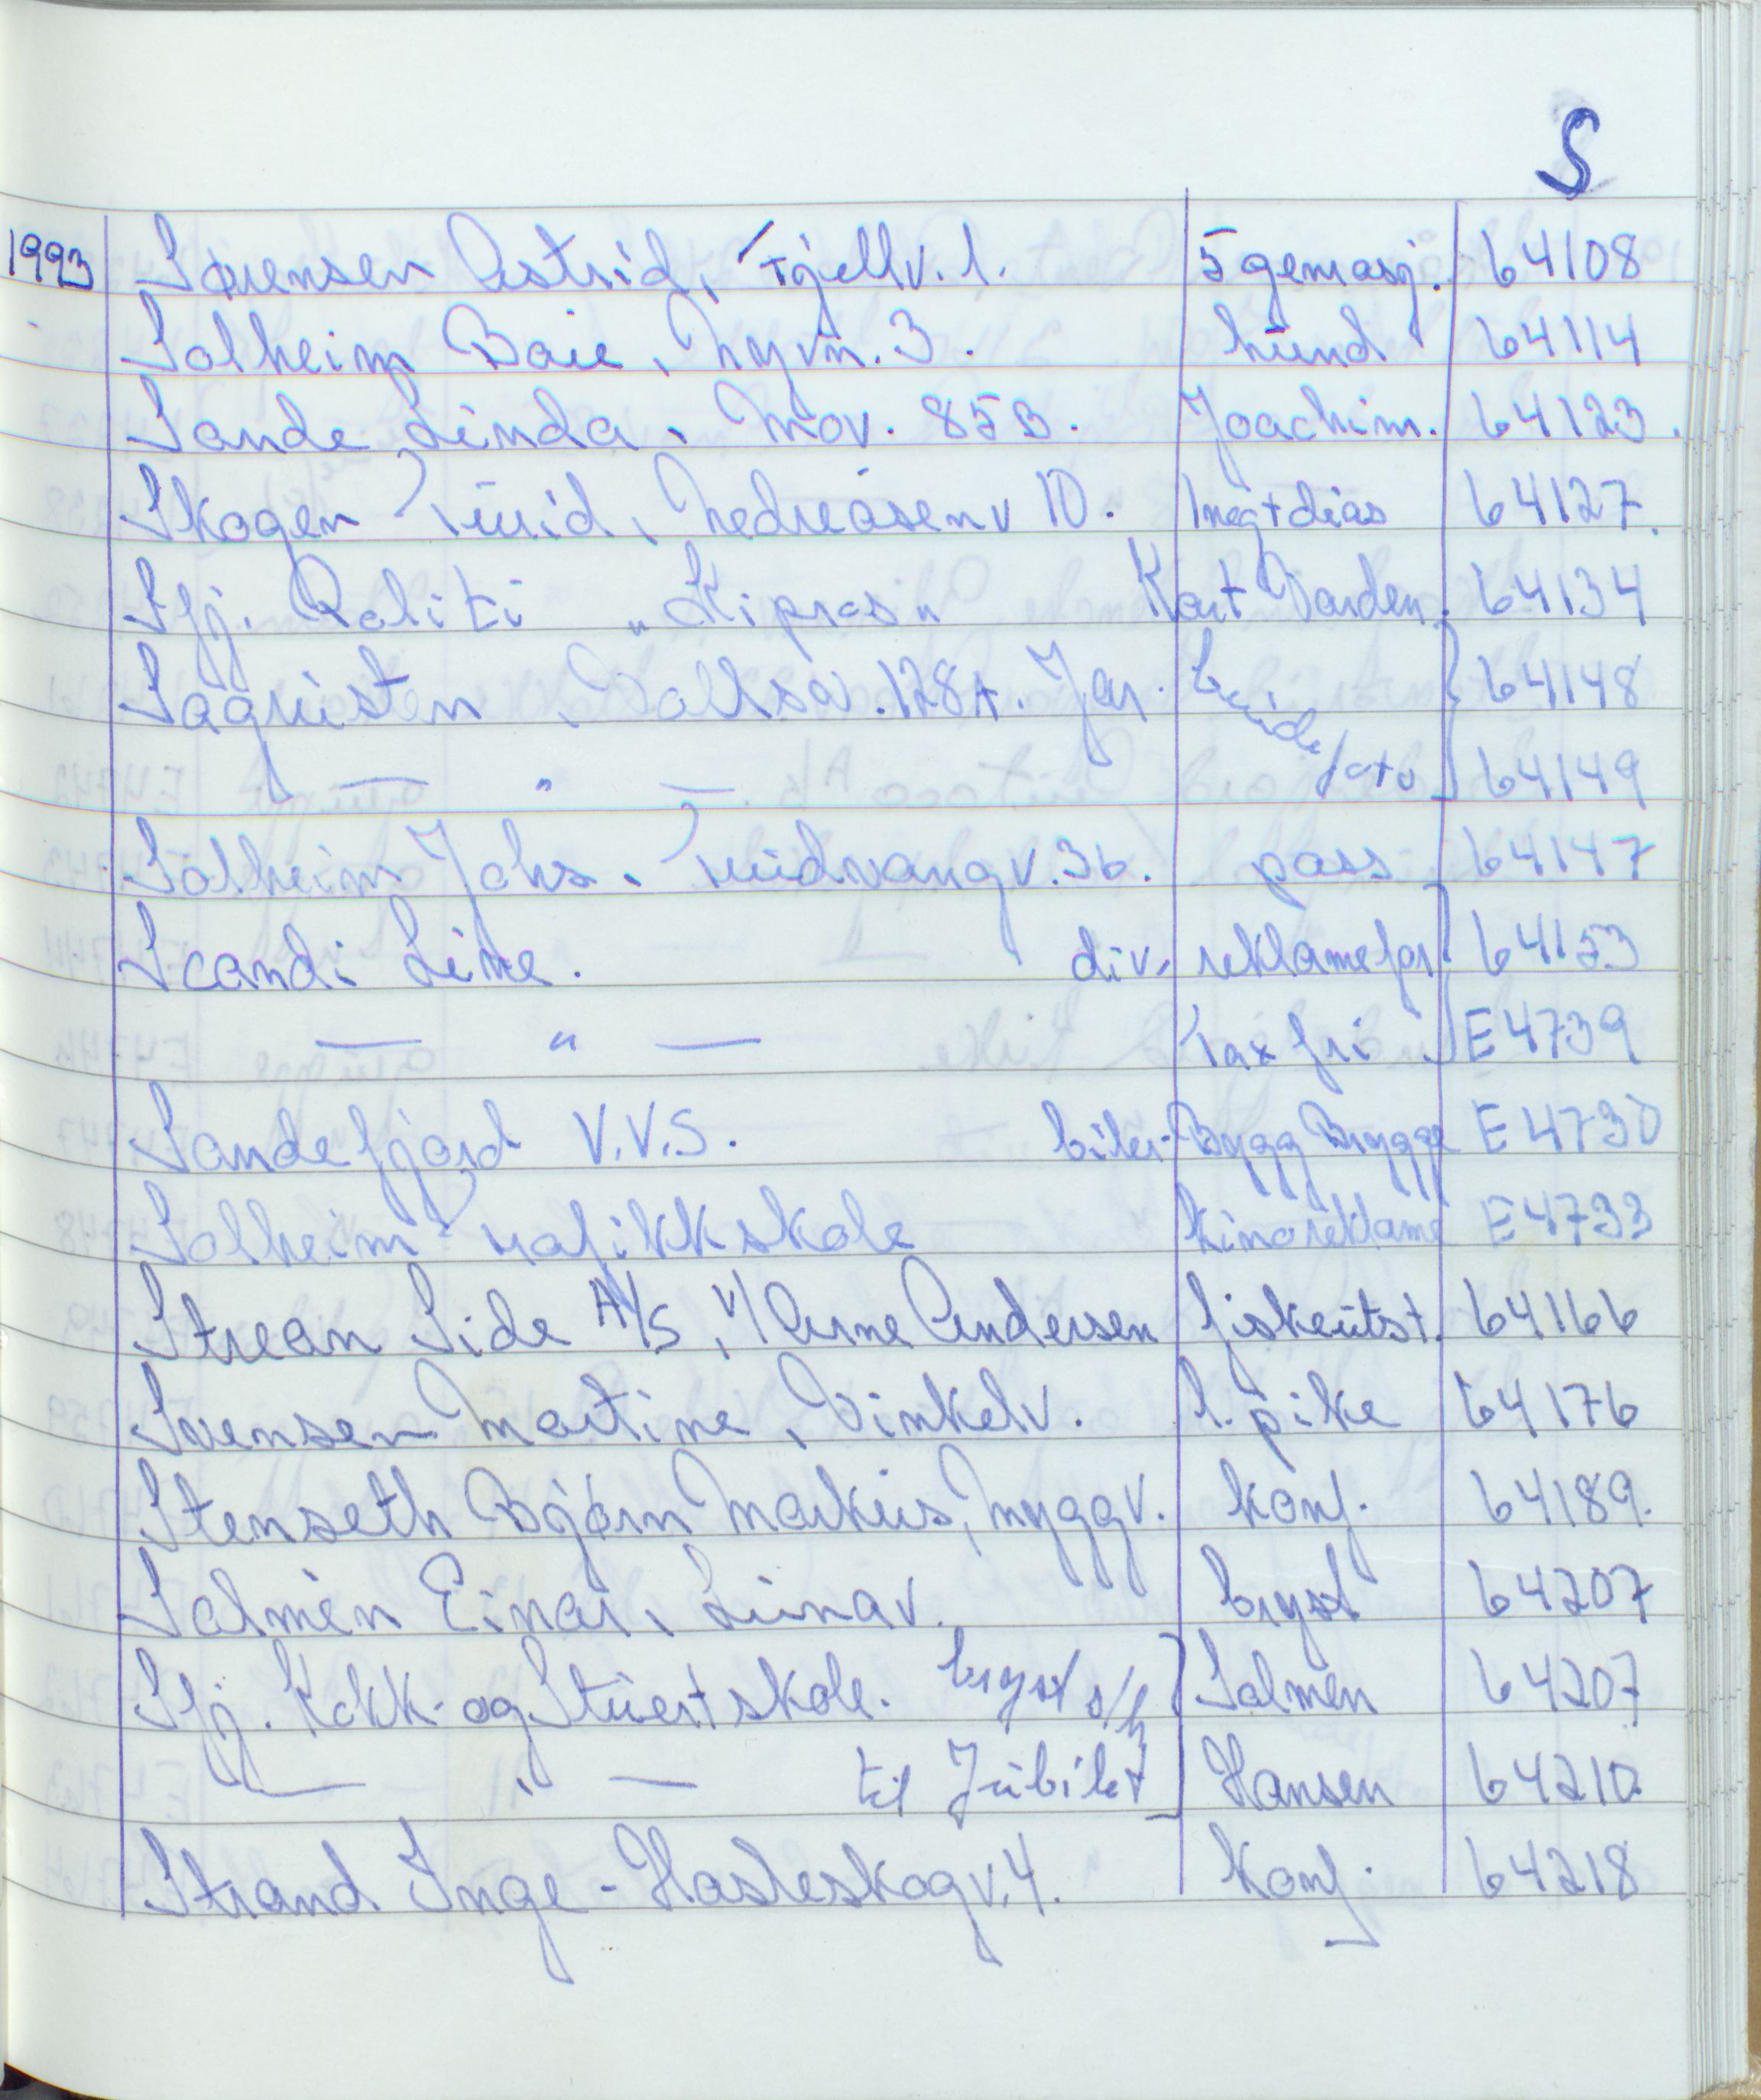 S
1993 Sørensen Astrid, Fjellv. 1. 5 gemasj. 64108
Solheim Baie, Nyvn. 3. hund 64114
Sande Linda, Mov. 85B. Joachim. 64123.
Skogen Turid, Nedreåsenv 10. 1neg+dias 64127.
Sfj. Politi "Kipras" Kart Verden. 64134
Sagristen, 128A. Jar. brude 64148
— " — foto 64149
Solheim Johs. Tuidvangv. 36. pass 64147
Scandi Line. div. reklamefor 64153
— " — Tax fri E4739
Sandefjord V.V.S. biler-Bygg Brygge E4730
Solheim Trafikkskole kinoreklame E4733
Strean Side A/S, v/ Arne Andersen fiskeutst. 64166
Svensen Martine, Vinkelv. l. pike 64176
Stenseth Bjørn Markus, Myggv. konf. 64189.
Salmèn Einar, Lunav. bryst 64207
Sfj. Kokk- og Stuertskole. bryst s/h Salmèn 64207
— " — til Jubilet Hansen 64210.
Strand Inge - Hasleskogv. 4. konf. 64218